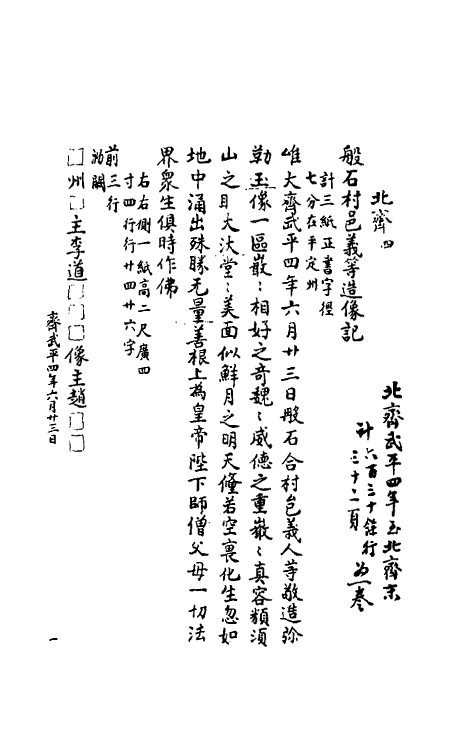 北齊四
北齊武平四年至北齊末
計六百三十餘行
三十二頁
為一卷
般石村邑義等造像記
計三紙正書字徑
七分在平定州
唯大齊武平四年六月廿三日般石合村邑義人等敬造弥
勒玉像一區巖〻相好之奇魏〻威德之重巖〻真容類須
山之目大汏堂〻美面似鮮月之明天龕若空裏化生忽如
地中涌出殊勝无量善根上為皇帝陛下師僧父母一切法
界衆生俱時作佛
右右側一紙高二尺廣四
寸四行行廿四廿六字
前三行
泐闕
□州□主李道□□□像主趙□□
齊武平四年六月廿三日
一